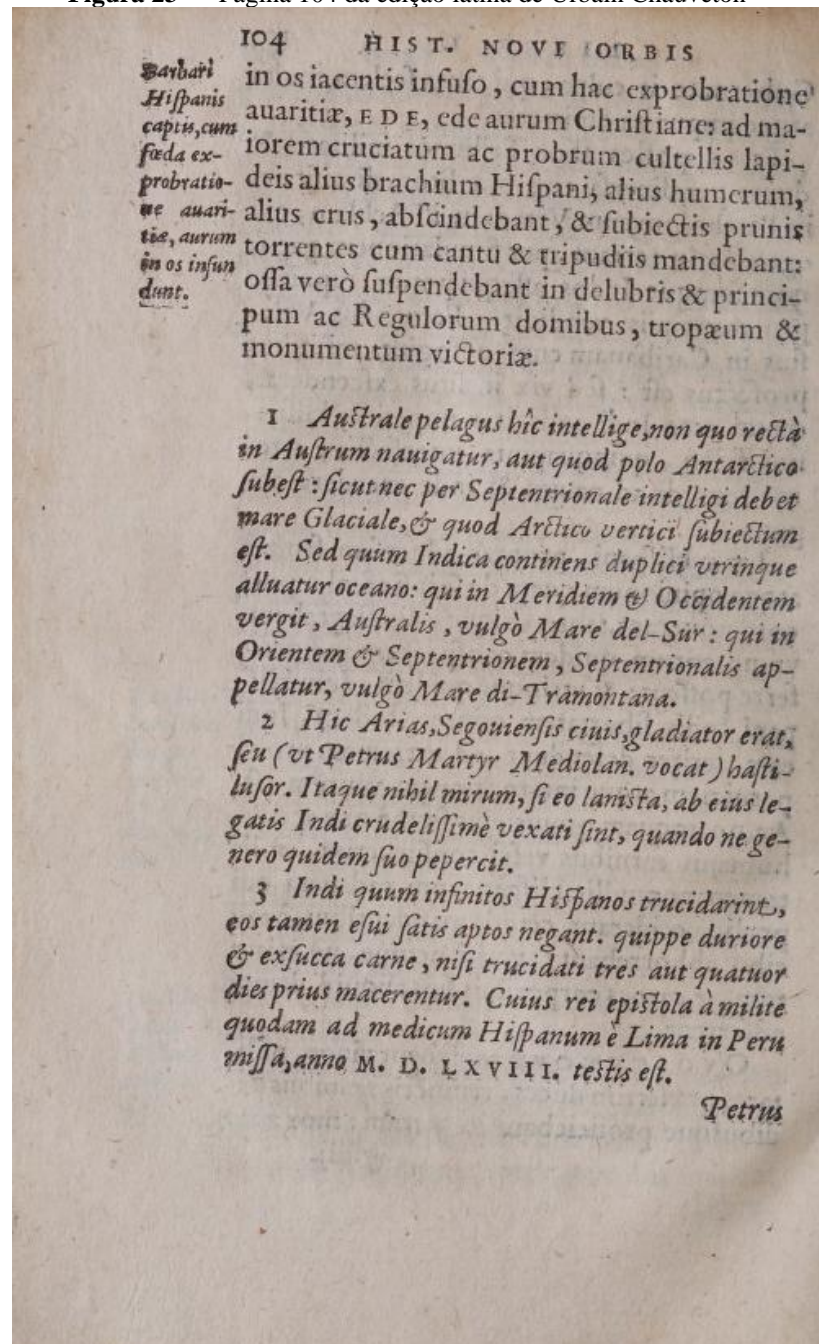 Figura 25 Página 104 da edição latina de Urbain Chauveton
104 HIST. NOVI ORBIS
Barbari
Hiſpanis
captis, cum
fœda ex-
probratio-
ne auari-
tiæ, aurum
in os infun
dunt.
in os iacentis infuſo, cum hac exprobratione
auaritiæ, EDE, ede aurum Chriſtiane: ad ma-
iorem cruciatum ac probrum cultellis lapi-
deis alius brachium Hiſpani, alius humerum,
alius crus, abſcindebant, & ſubiectis prunis
torrentes cum cantu & tripudiis mandebant:
oſſa verò ſuſpendebant in delubris & princi-
pum ac Regulorum domibus, tropæum &
monumentum victoriæ.
1 Auſtrale pelagus hîc intellige, non quo rectà
in Auſtrum nauigatur, aut quod polo Antarctico
ſubeſt: ſicut nec per Septentrionale intelligi debet
mare Glaciale, & quod Arctico vertici ſubiectum
eſt. Sed quum Indica continens duplici vtrinque
alluatur oceano: qui in Meridiem & Occidentem
vergit, Auſtralis, vulgò Mare del-Sur: qui in
Orientem & Septentrionem, Septentrionalis ap-
pellatur, vulgò Mare di-Tramontana.
2 Hic Arias, Segouienſis ciuis, gladiator erat,
ſeu (vt Petrus Martyr Mediolan. vocat) haſti-
luſor. Itaque nihil mirum, ſi eo laniſta, ab eius le-
gatis Indi crudeliſſimè vexati ſint, quando ne ge-
nero quidem ſuo pepercit.
3 Indi quum infinitos Hiſpanos trucidarint,
eos tamen eſui ſatis aptos negant. quippe duriore
& exſucca carne, niſi trucidati tres aut quatuor
dies prius macerentur. Cuius rei epiſtola à milite
quodam ad medicum Hiſpanum è Lima in Peru
miſſa, anno M. D. LXVIII. teſtis eſt.
Petrus